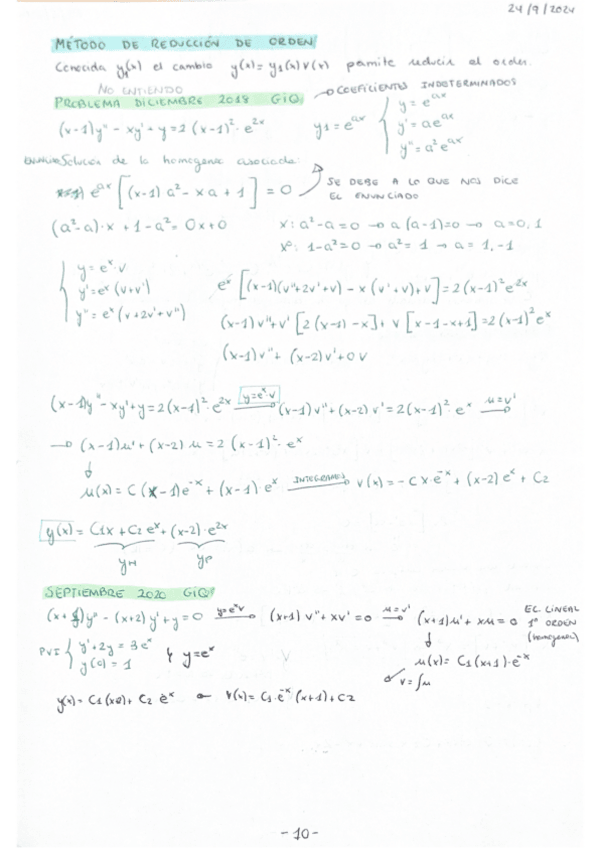 24/9/2024
MÉTODO DE REDUCCIÓN DE ORDEN
Conocida y₁(x) el cambio y(x)= y₁(x)v(x) permite reducir el orden.
NO ENTIENDO
PROBLEMA DICIEMBRE 2018 GIQ → COEFICIENTES INDETERMINADOS
(x-1)y'' - xy' + y = 2(x-1)²·e²ˣ y1 = eᵃˣ { y = eᵃˣ
y' = aeᵃˣ
y'' = a²eᵃˣ
Solución de la homogenea asociada:
eᵃˣ [(x-1)a² - xa + 1] = 0 → SE DEBE A LO QUE NOS DICE EL ENUNCIADO
(a²-a)·x + 1-a² = 0x+0 x: a²-a=0 → a(a-1)=0 → a=0,1
x⁰: 1-a²=0 → a²=1 → a=1,-1
{ y = eˣ·v
y' = eˣ(v+v')
y'' = eˣ(v+2v'+v'')
eˣ [(x-1)(v''+2v'+v) - x(v'+v)+v] = 2(x-1)²e²ˣ
(x-1)v''+v' [2(x-1)-x]+ v [x-1-x+1] = 2(x-1)²eˣ
(x-1)v'' + (x-2)v'+0v
(x-1)y'' - xy'+y = 2(x-1)²·e²ˣ y=eˣ·v → (x-1)v'' + (x-2)v' = 2(x-1)²·eˣ u=v' →
→ (x-1)u' + (x-2)u = 2(x-1)²·eˣ
↓
u(x) = C(x-1)e⁻ˣ + (x-1)·eˣ INTEGRAMOS → v(x) = -Cx·e⁻ˣ + (x-2)eˣ + C2
y(x) = C1x + C2eˣ + (x-2)·e²ˣ
yH yP
SEPTIEMBRE 2020 GIQ
(x+1)y'' - (x+2)y'+y = 0 y=eˣv → (x+1)v''+xv' = 0 u=v' → (x+1)u' + xu = 0 EC. LINEAL 1º ORDEN (homogenea)
PVI { y'+2y = 3eˣ
y(0) = 1 y = eˣ
↓
u(x) = C1(x+1)·e⁻ˣ
v = ∫u
y(x) = C1(x+2) + C2 eˣ ← v(x) = C1·e⁻ˣ(x+1)+C2
-10-